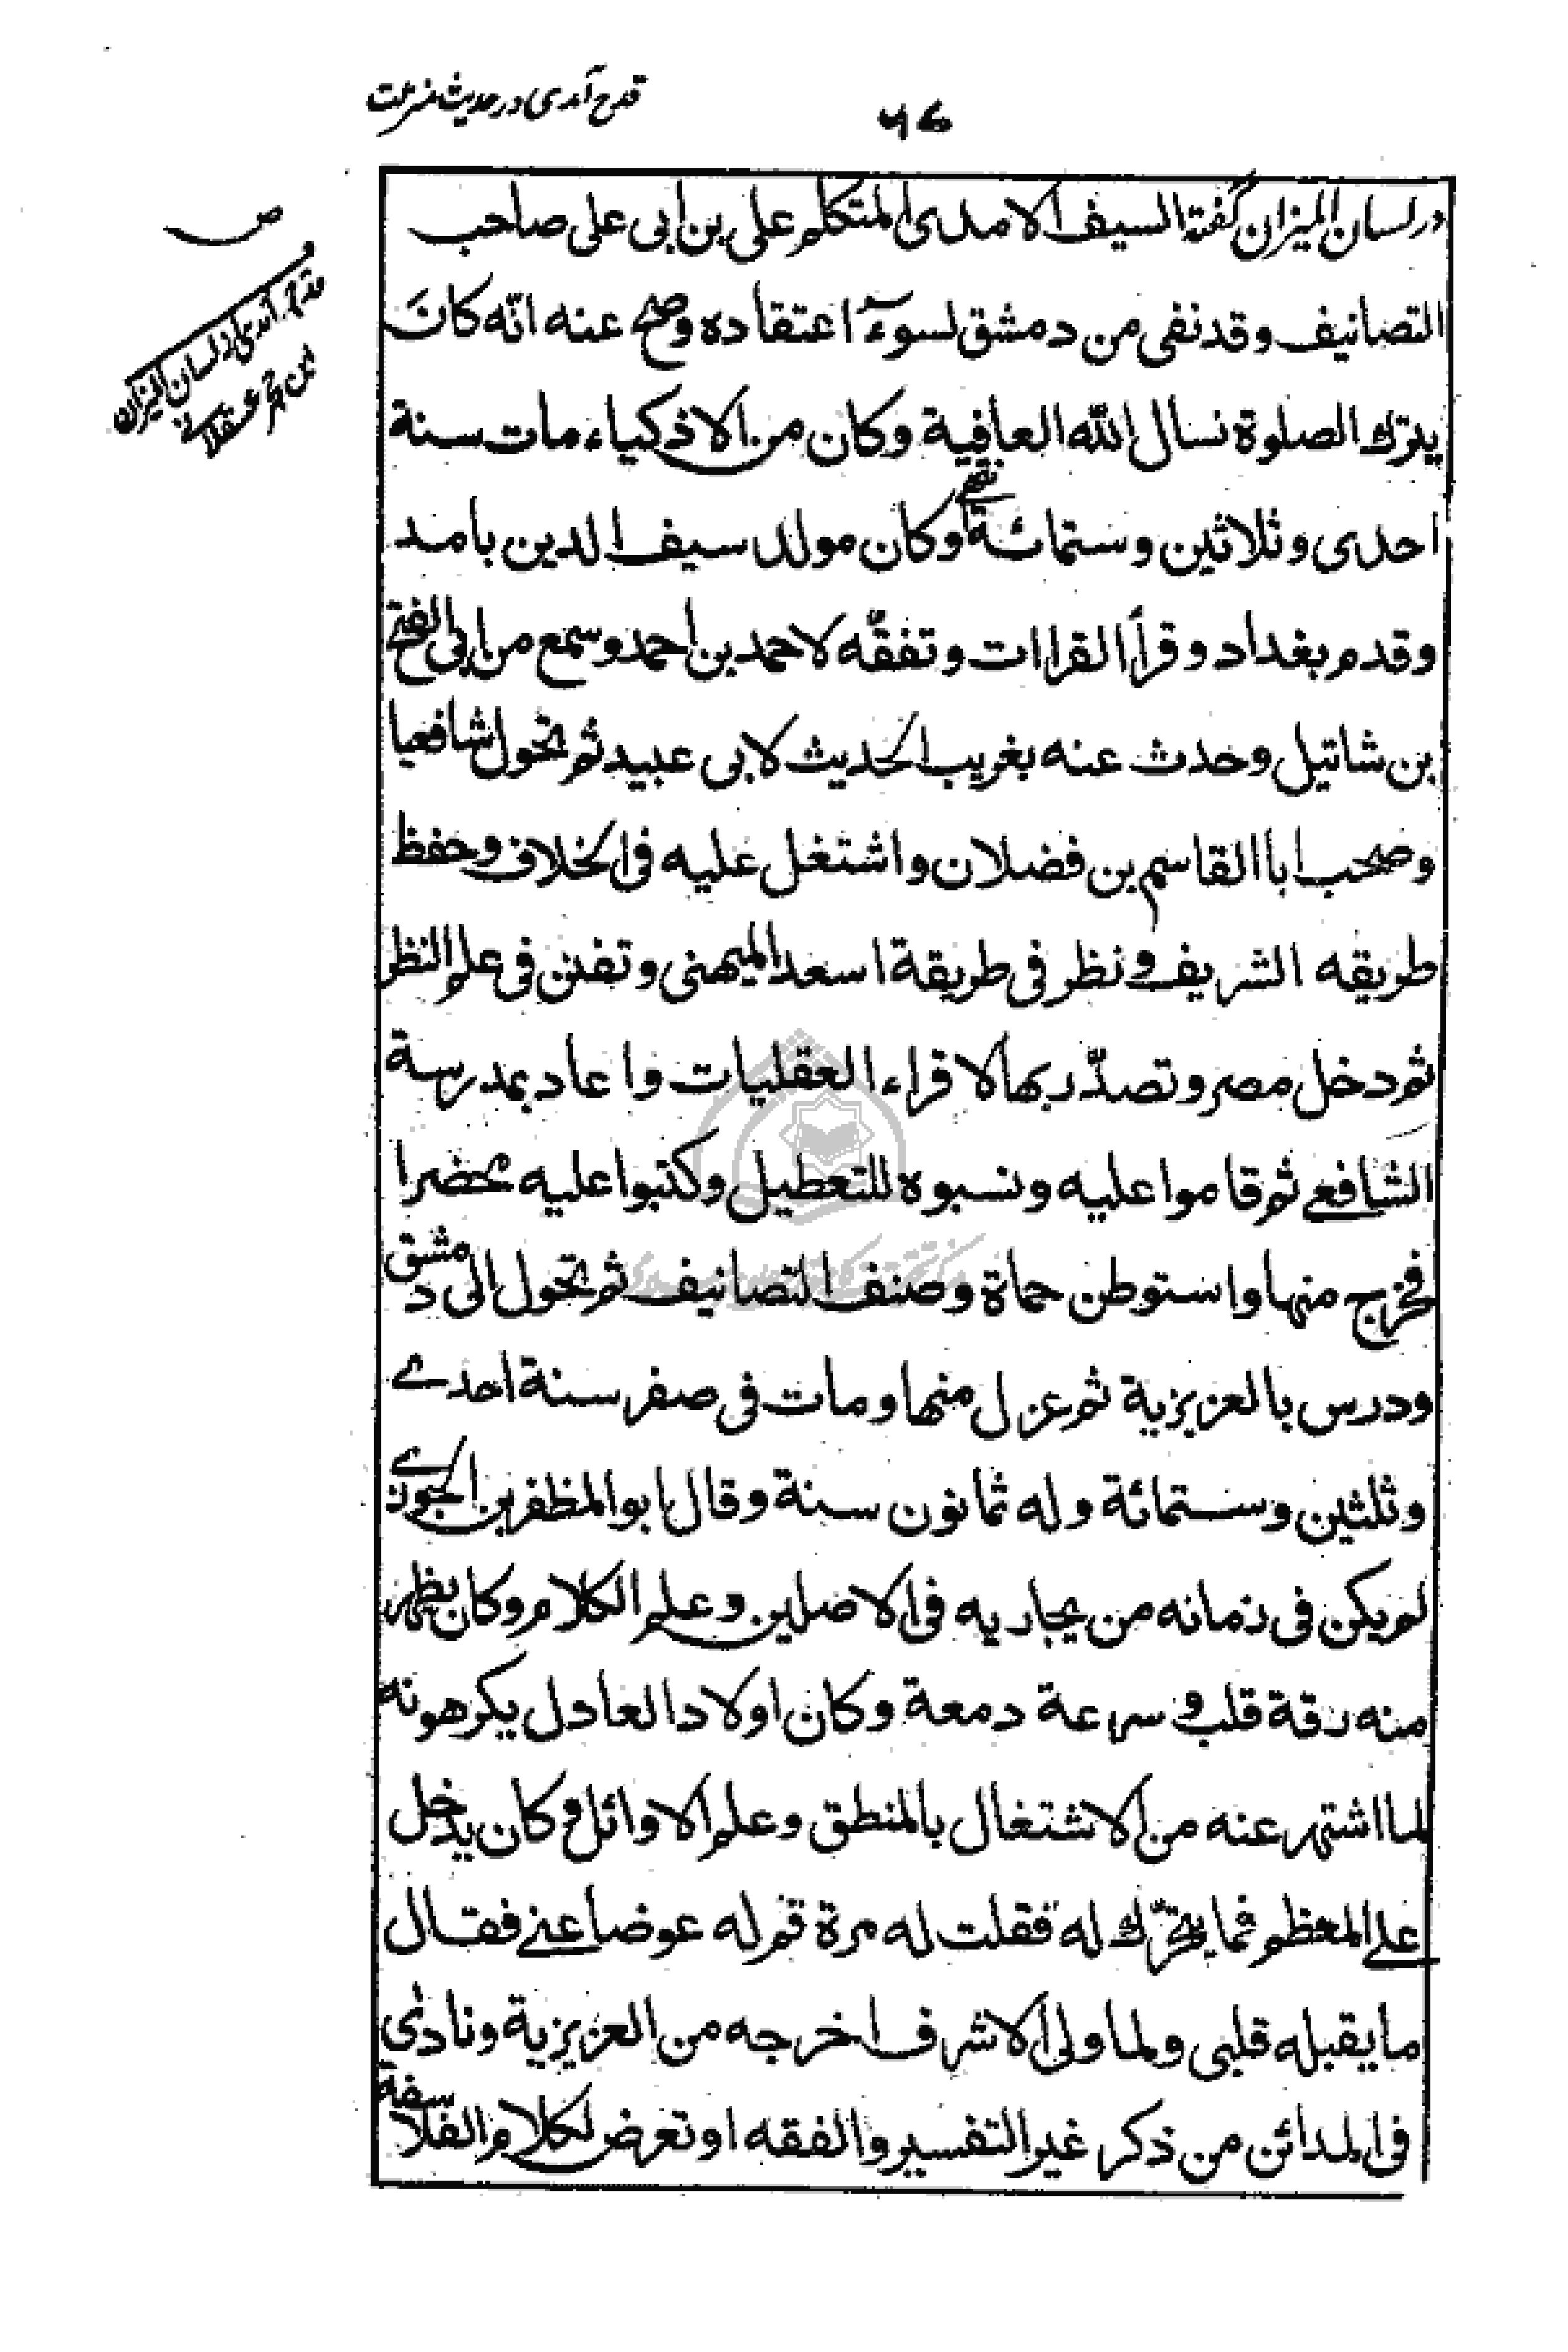 قدح آمدی در حدیث منزلت
٥٦
ص
قدح آمدی از لسان المیزان
ابن حجر عسقلانی
در لسان المیزان گفته السیف الامدی المتکلم علی بن ابی علی صاحب
التصانیف و قد نفی من دمشق لسوء اعتقاده وصح عنه انّه کانَ
یترك الصلوة نسال اللّه العافیة وکان من الاذکیاء مات سنة
احدی وثلاثین وستمائة انتهی وکان مولد سیف الدین بامد
وقدم بغداد وقرأ القراات وتفقّه لاحمد بن احمد وسمع من ابی الفتح
بن شاتیل وحدث عنه بغریب الحدیث لابی عبید ثم تحول شافعیا
وصحب ابا القاسم بن فضلان واشتغل علیه فی الخلاف وحفظ
طریقه الشریف و نظر فی طریقة اسعد المیهنی وتفنن فی علم النظر
ثم دخل مصر وتصدّر بها لاقراء العقلیات واعاد بمدرسة
الشافعی ثم قاموا علیه ونسبوه للتعطیل وکتبوا علیه محضرا
فخرج منها واستوطن حماة وصنف التصانیف ثم تحول الی دمشق
ودرس بالعزیزیة ثم عزل منها ومات فی صفر سنة احدی
وثلثین وستمائة وله ثمانون سنة وقال ابو المظفر بن الجوزی
لم یکن فی زمانه من یجاریه فی الاصلین وعلم الکلام وکان یظهر
منه رقة قلب و سرعة دمعة وکان اولاد العادل یکرهونه
لما اشتهر عنه من الاشتغال بالمنطق وعلم الاوائل و کان یدخل
علی المعظم فما یتحرّك له فقلت له مرة قم له عوضا عنی فقال
ما یقبله قلبی ولما ولی الاشرف اخرجه من العزیزیة ونادی
فی المدائن من ذکر غیر التفسیر والفقه او تعرض لکلام الفلاسفة